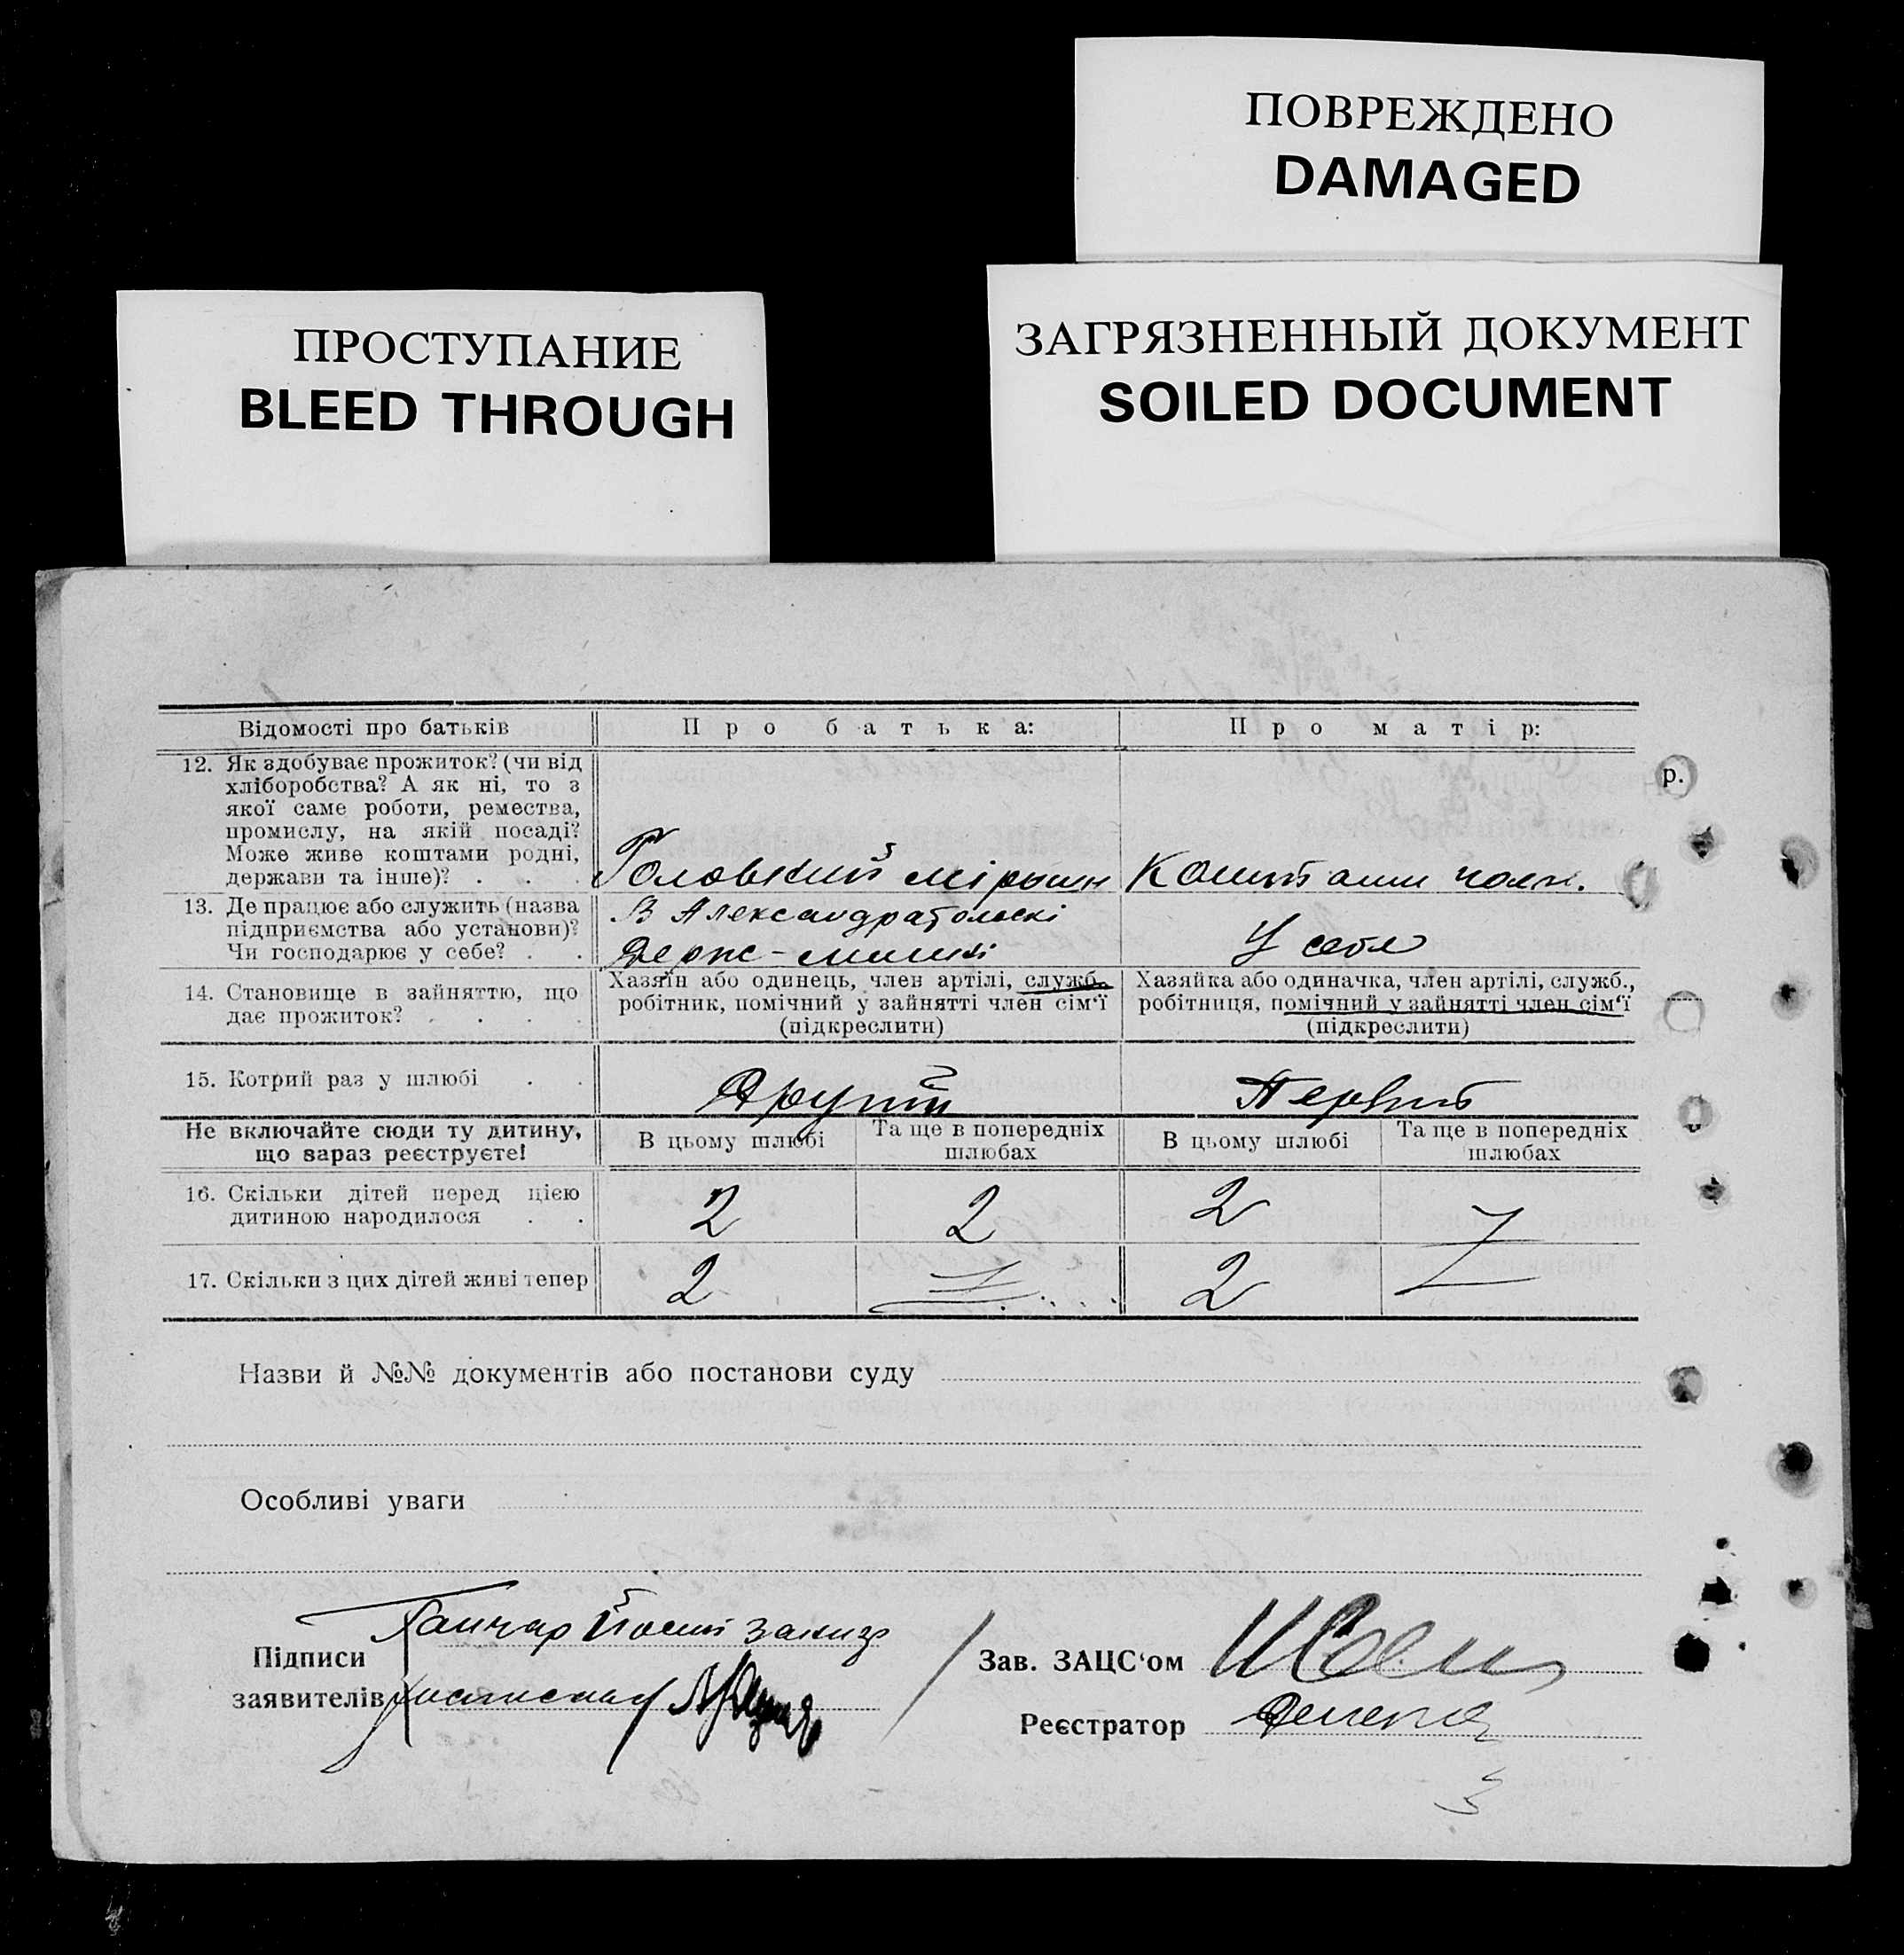 ПОВРЕЖДЕНО
DAMAGED
ПРОСТУПАНИЕ
BLEED THROUGH
ЗАГРЯЗНЕННЫЙ ДОКУМЕНТ
SOILED DOCUMENT
Відомості про батьків
Про батька:
Про матір:
12. Як здобуває прожиток? (чи від
хліборобства? А як ні, то з
якої саме роботи, ремества,
промислу, на якій посаді?
Може живе коштами родні,
держави та інше)? . . .
Головний
Коштами чолов.
р.
13. Де працює або служить (назва
підприємства або установи)?
Чи господарює у себе? . .
В
У себя
14. Становище в зайняттю, що
дає прожиток? . . . .
Хазяїн або одинець, член артілі, служб.
робітник, помічний у зайнятті член сім'ї
(підкреслити)
Хазяйка або одиначка, член артілі, служб.,
робітниця, помічний у зайнятті член сім'ї
(підкреслити)
15. Котрий раз у шлюбі . .
Другий
Первий
Не включайте сюди ту дитину,
що зараз реєструєте!
В цьому шлюбі
Та ще в попередніх
шлюбах
В цьому шлюбі
Та ще в попередніх
шлюбах
16. Скільки дітей перед цією
дитиною народилося . .
2
2
2
17. Скільки з цих дітей живі тепер
2
2
Назви й №№ документів або постанови суду
Особливі уваги
Підписи
заявителів
Зав. ЗАЦС'ом
Реєстратор